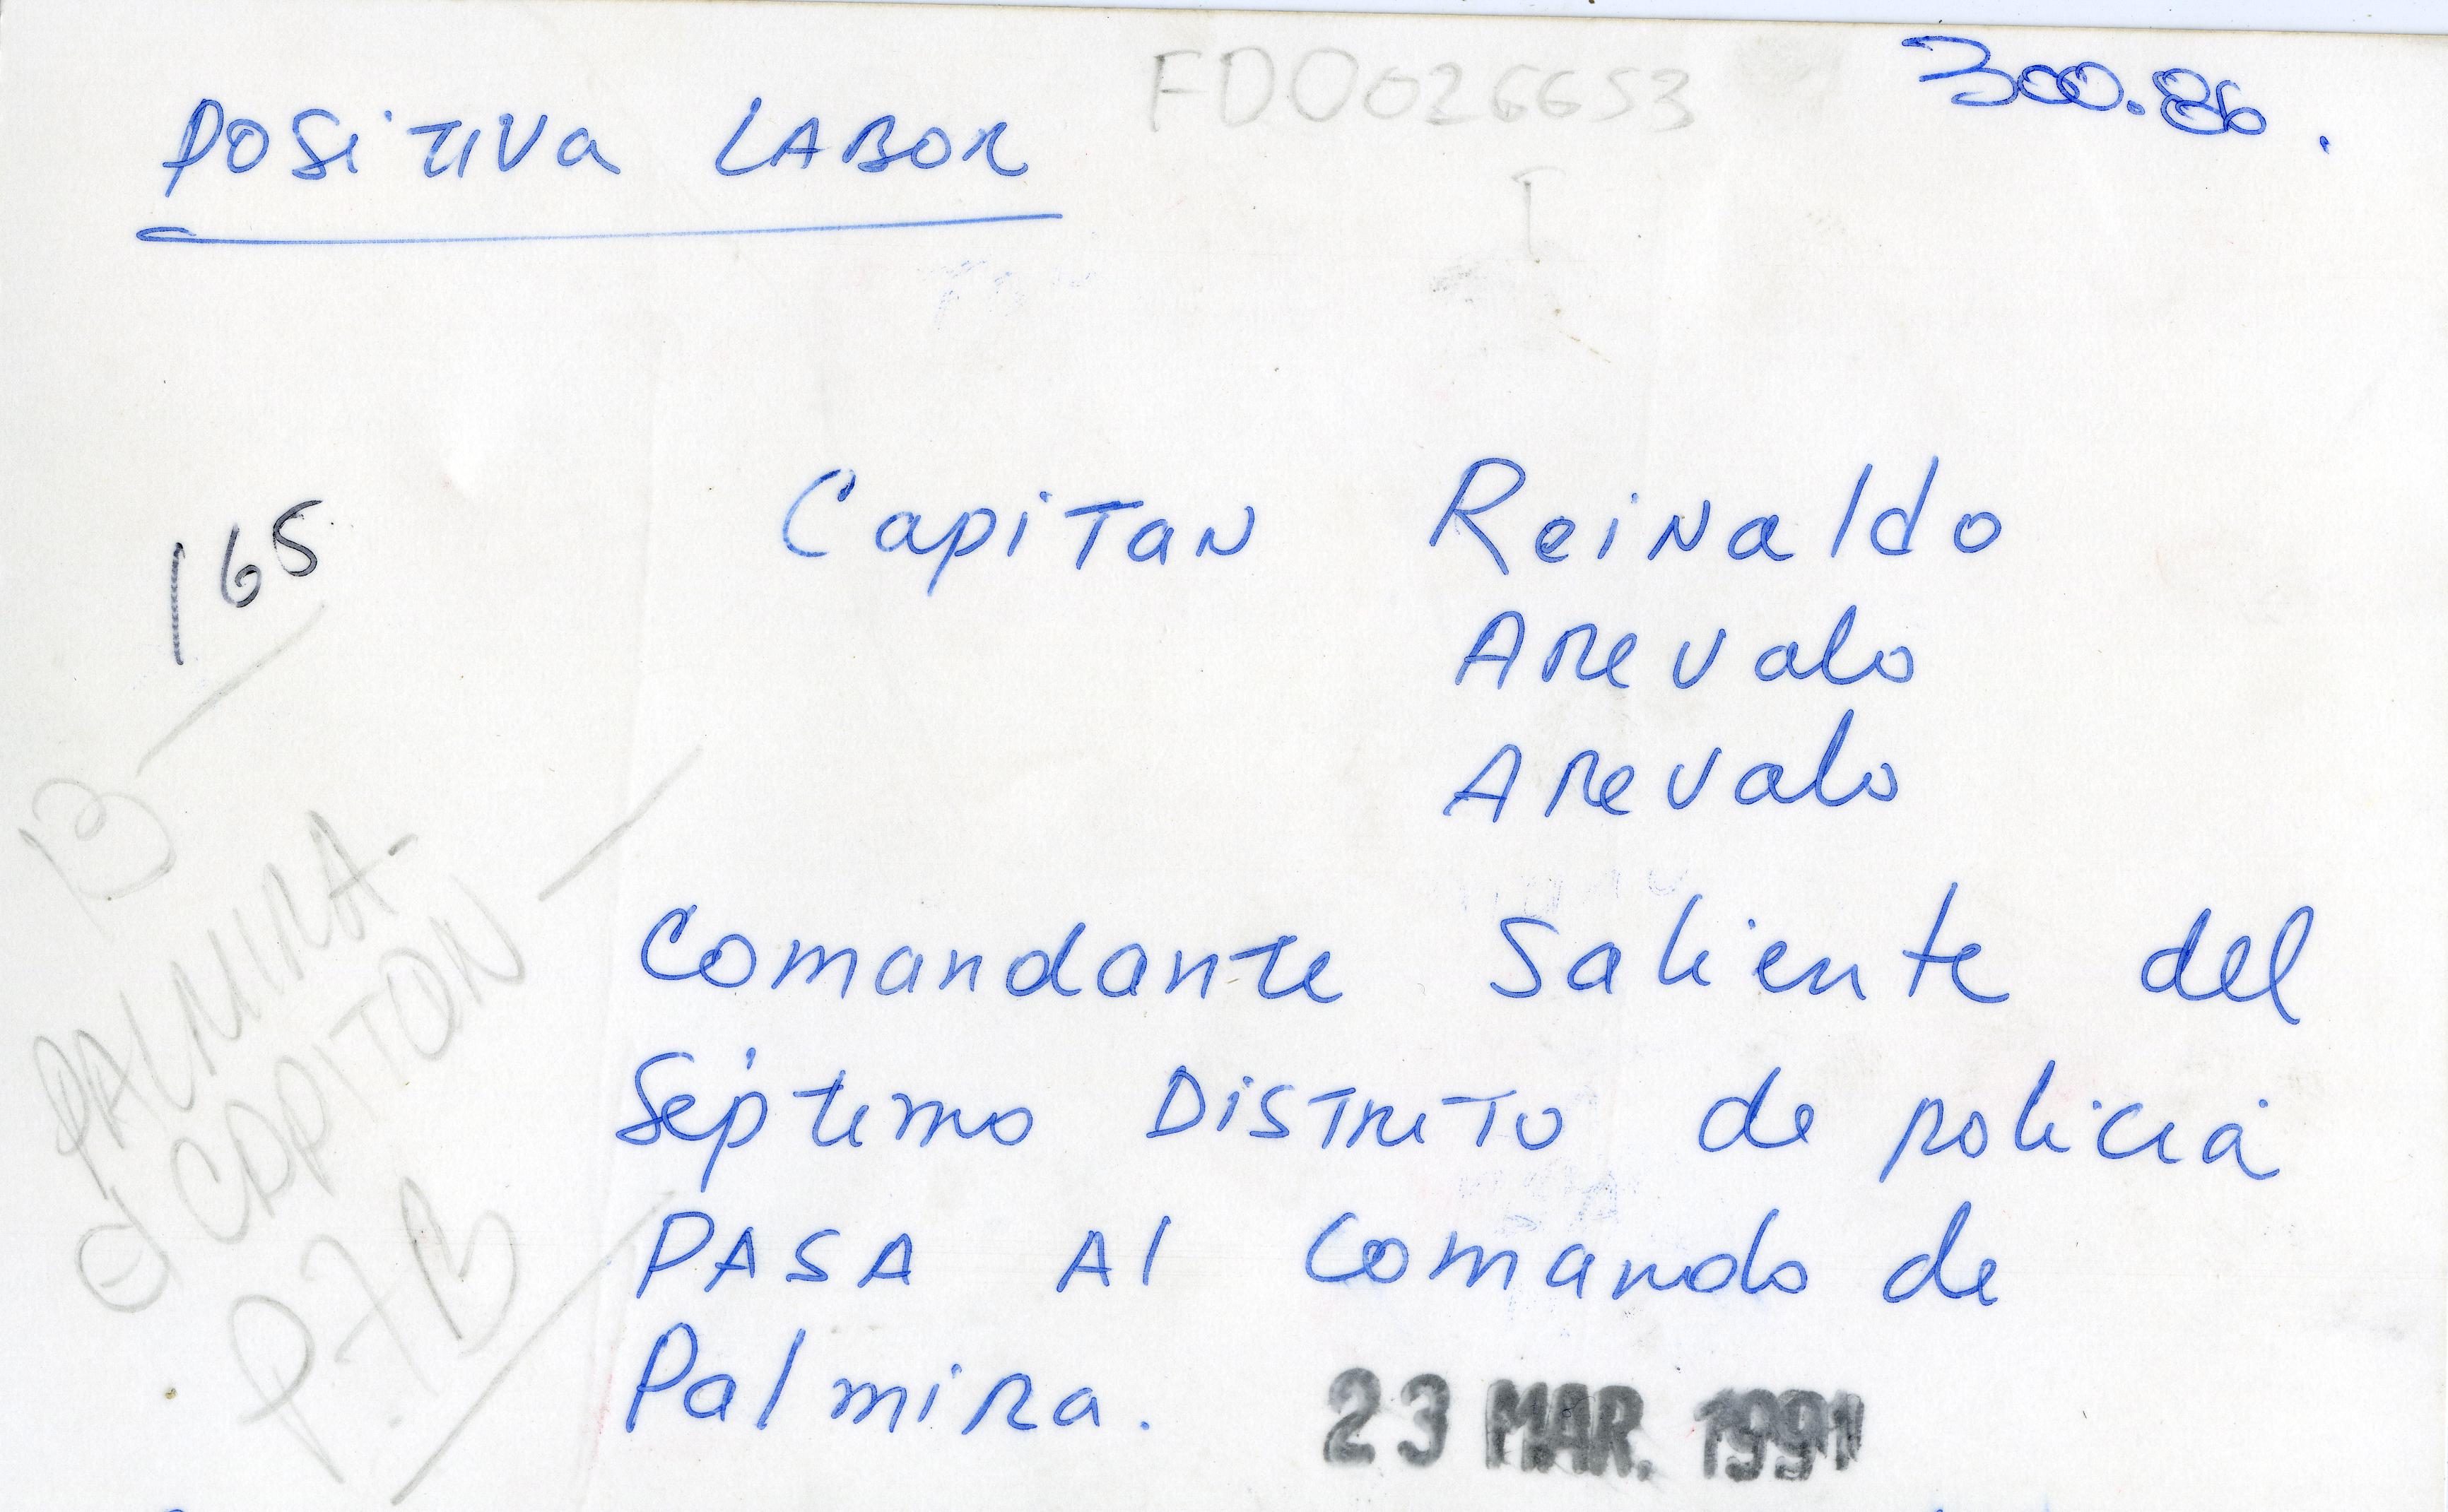 FD0026653
300.86.
Positiva LABOR
Capitan Reinaldo
Arevalo
Arevalo
165
13
PALMIRA-
CAPITON
P.7B
Comandante Saliente del
Séptimo Distrito de policia
PASA Al Comando de
Palmira.
23 MAR. 1991